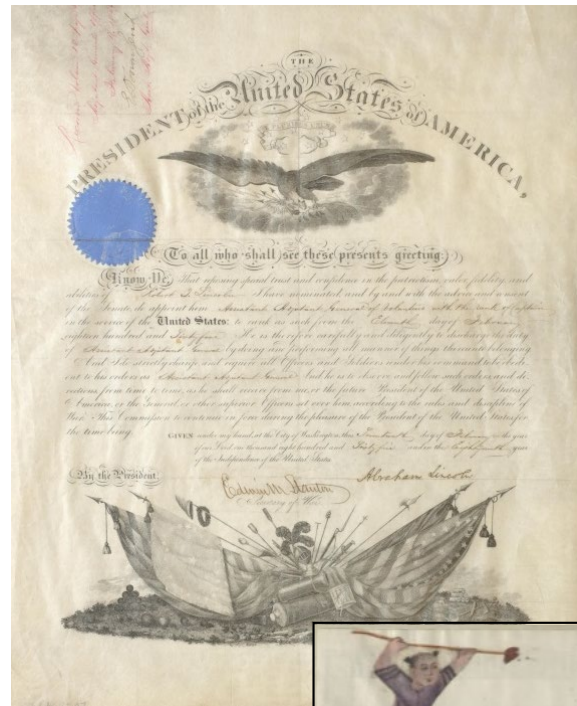 THE
PRESIDENT of the United States of AMERICA,
To all who shall see these presents greeting:
Know Ye, That reposing special trust and confidence in the patriotism, valor, fidelity, and
abilities of Robert T. Lincoln I have nominated, and by and with the advice and consent
of the Senate, do appoint him Assistant Adjutant General of Volunteers with the rank of Captain
in the service of the United States: to rank as such from the Eleventh day of February
eighteen hundred and sixty five. He is therefore carefully and diligently to discharge the duty
of Assistant Adjutant General by doing and performing all manner of things thereunto belonging.
And I do strictly charge and require all Officers and Soldiers under his command to be obedi-
ent to his orders as Assistant Adjutant General. And he is to observe and follow such orders and di-
rections from time to time, as he shall receive from me, or the future President of the United States of
America, or the General or other superior Officers set over him, according to the rules and discipline of
War. This Commission to continue in force during the pleasure of the President of the United States for
the time being.
GIVEN under my hand at the City of Washington this day of February in the year
of our Lord one thousand eight hundred and Sixty five and in the Eighty Ninth year
of the Independence of the United States.
By the President
Abraham Lincoln
Edwin M. Stanton
Secretary of War.